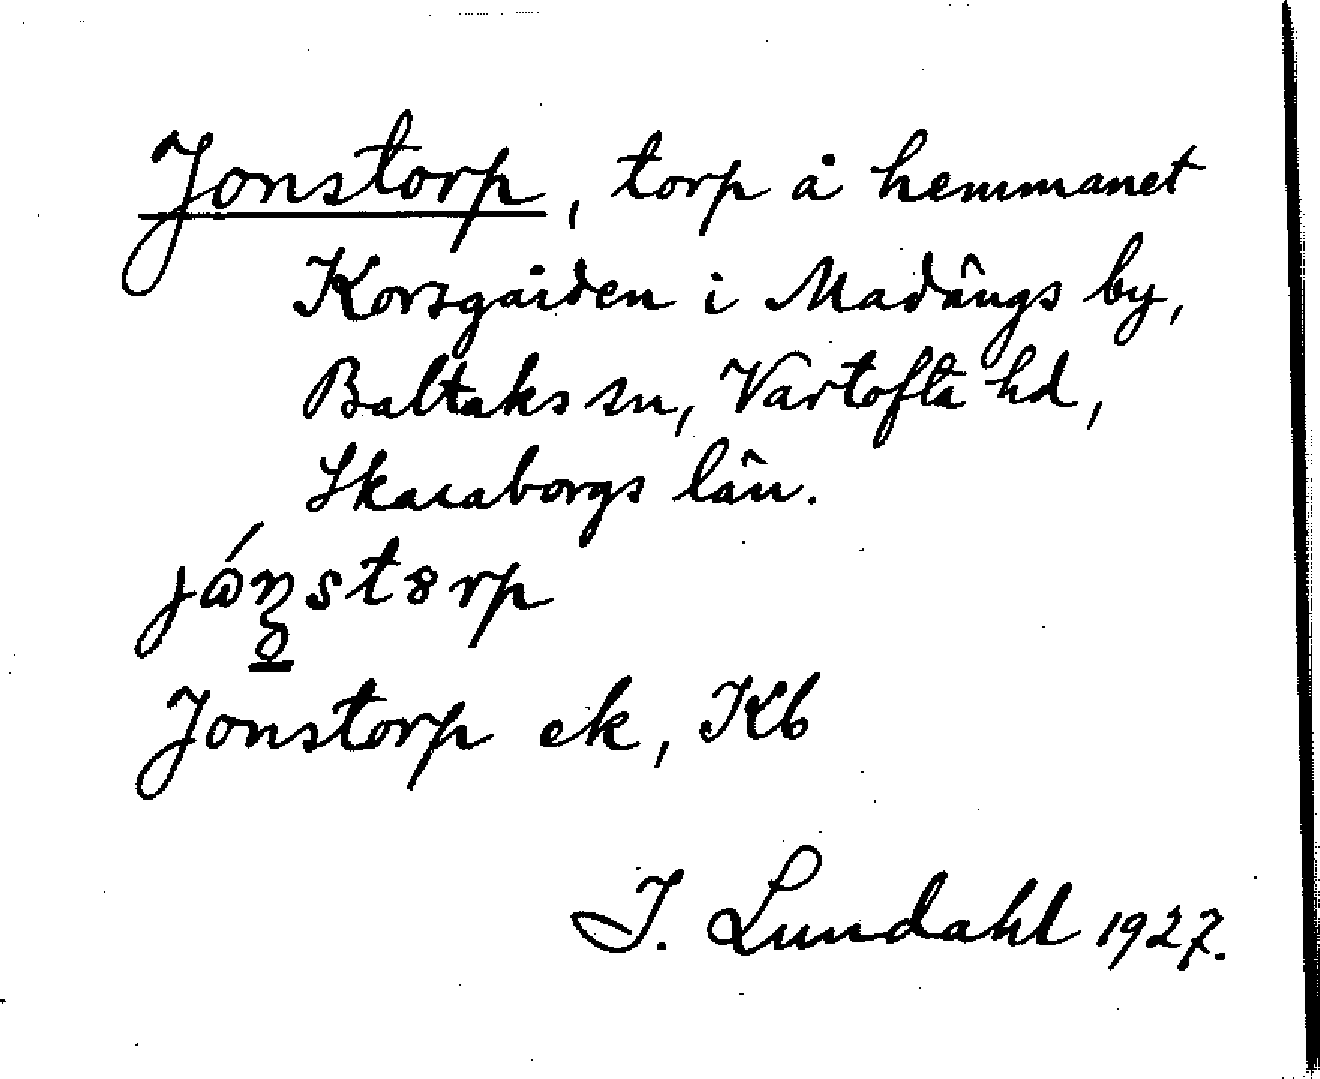 Jonstorp, torp å hemmanet
Korsgården i Madängs by,
Baltaks sn, Vartofta hd,
Skaraborgs län.
Jonstorp ek, Kb
I. Lundahl 1927.